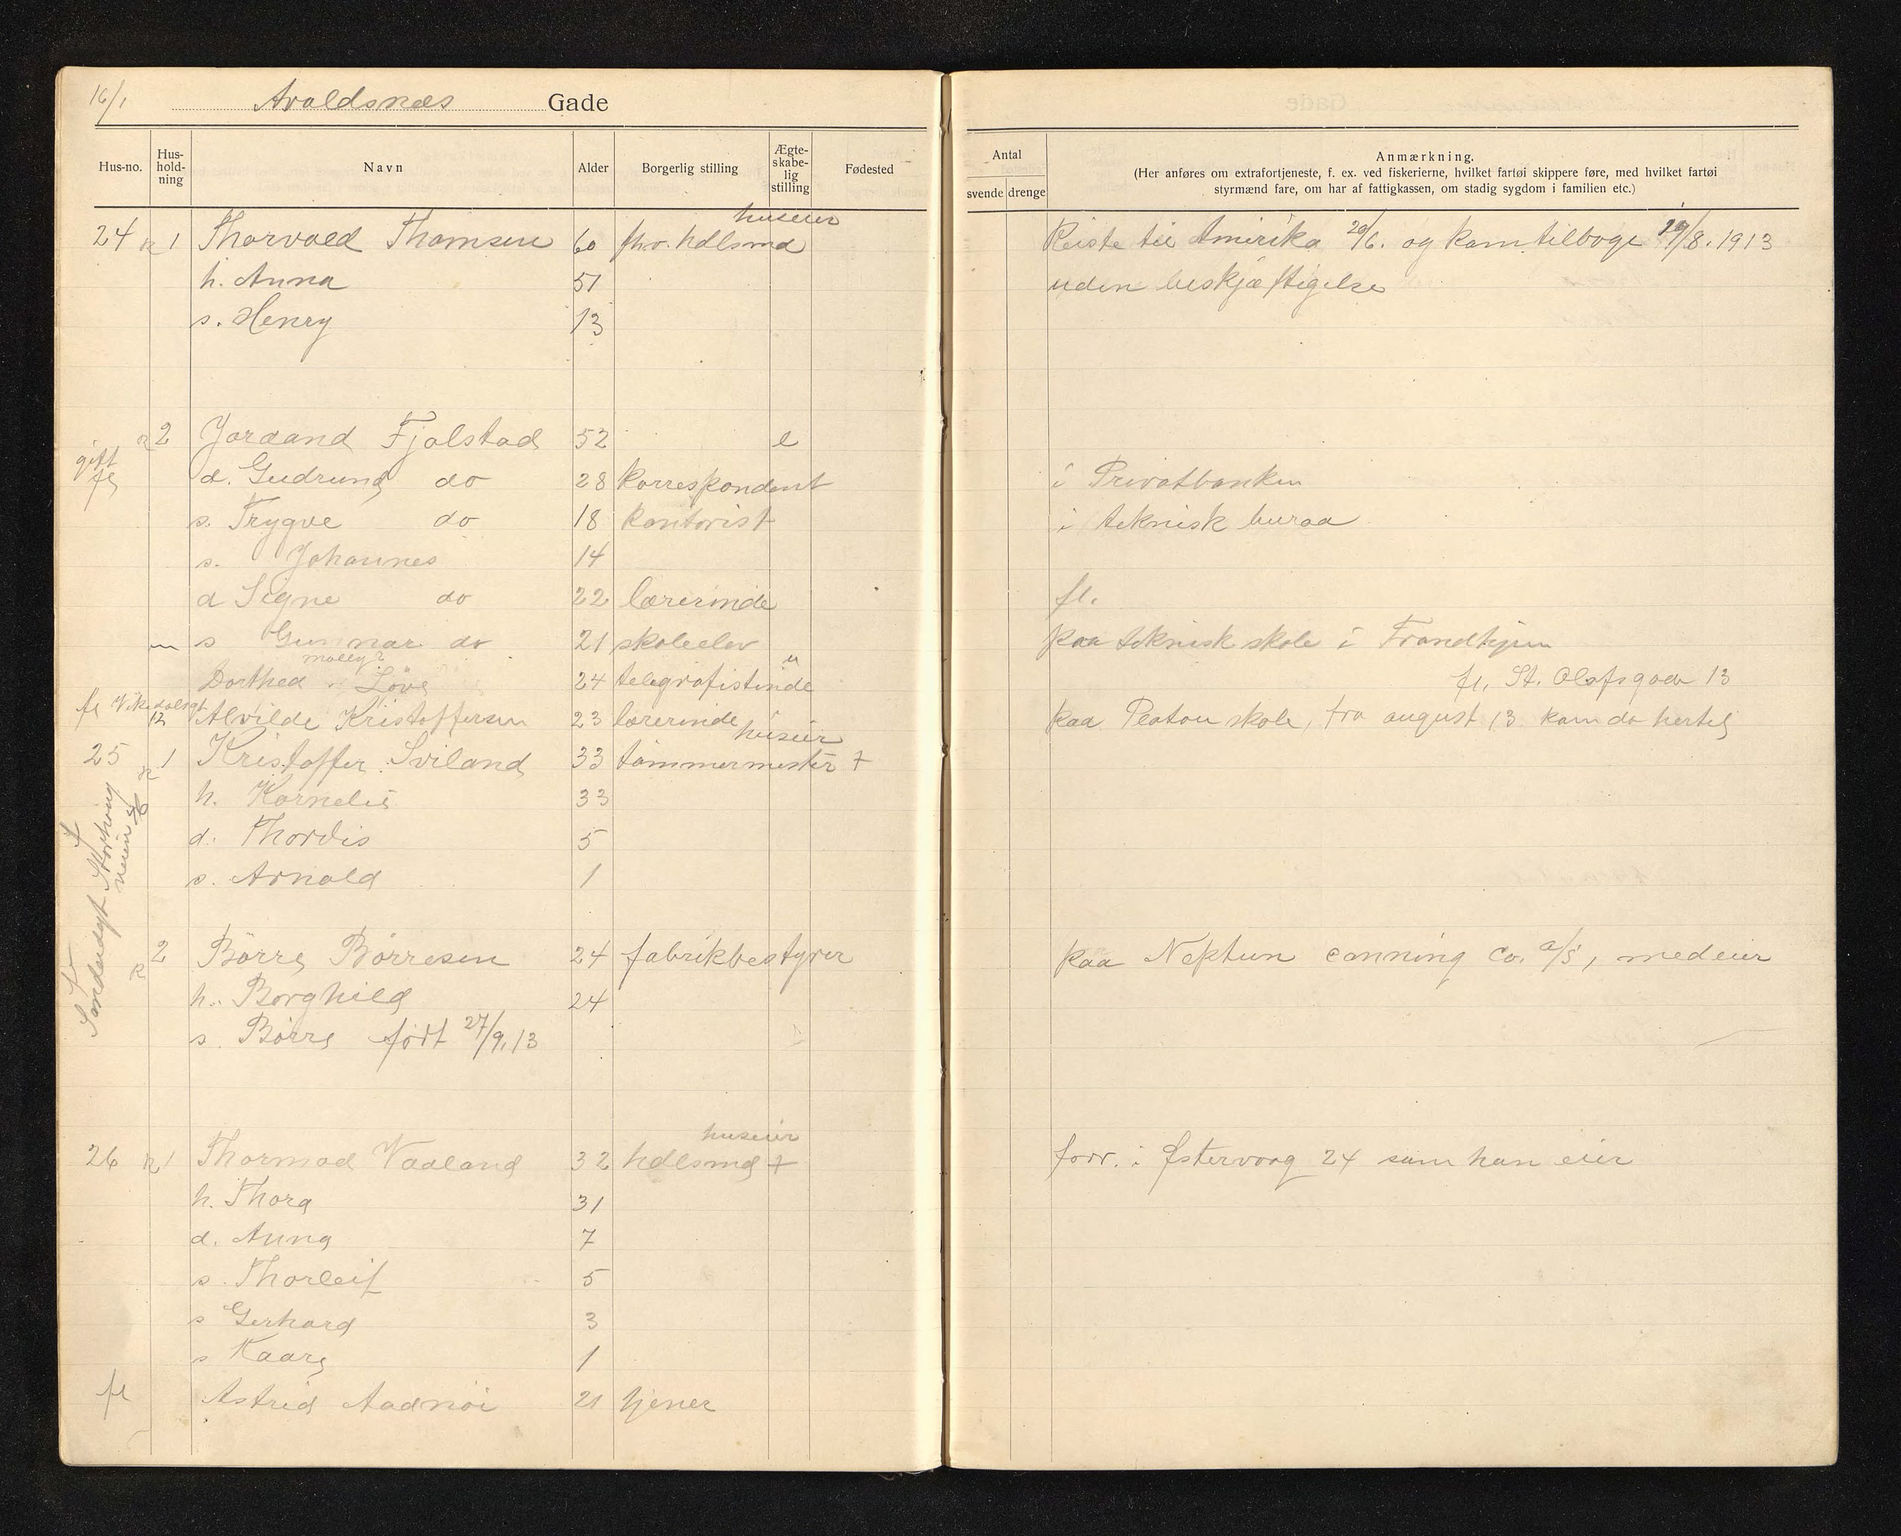 16/1 Avaldsnes Gade
Hus-no. Hus-hold-ning Navn Alder Borgerlig stilling Ægte-skabe-lig stilling Fødested
Antal svende drenge
Anmærkning.
(Her anføres om extrafortjeneste, f. ex. ved fiskerierne, hvilket fartøi skippere føre, med hvilket fartøi
styrmænd fare, om har af fattigkassen, om stadig sygdom i familien etc.)
huseier
24 1 Thorvald Thomsen 60 fhv. hdlsmd Reiste til Amerika 20/6. og kom tilbage 19/8. 1913
h. Anna 51 uden beskjæftigelse
s. Henry 13
2 Jordand Fjolstad 52 e
gift
fl d. Gudrund do 28 korrespondent i Privatbanken
s. Trygve do 18 kontorist i teknisk buraa
s. Johannes 14
d Signe do 22 lærerinde fl.
s Gunnar do 21 skoleelev paa teknisk skole i Trondhjem
molly?
Dorthea Löve 24 telegrafistinde u fl. St. Olafsgade 13
fl 12 Alvilde Kristoffersen 23 lærerinde paa Peatou skole, fra august 13 kom da hertil
huseier
25 1 Kristoffer Sviland 33 tømmermester +
h. Kornelie 33
d. Thordis 5
s. Arnold 1
2 Börre Börresen 24 fabrikbestyrer paa Neptun canning co. a/s, medeier
h. Borghild 24
s. Börre født 27/9.13
huseier
26 1 Thormod Vadland 32 hdlsmd + forr. i Østervaag 24 som han eier
h. Thora 31
d. Anna 7
s. Thorleif 5
s Gerhard 3
s Kaare 1
fl Astrid Aadnöi 21 tjener